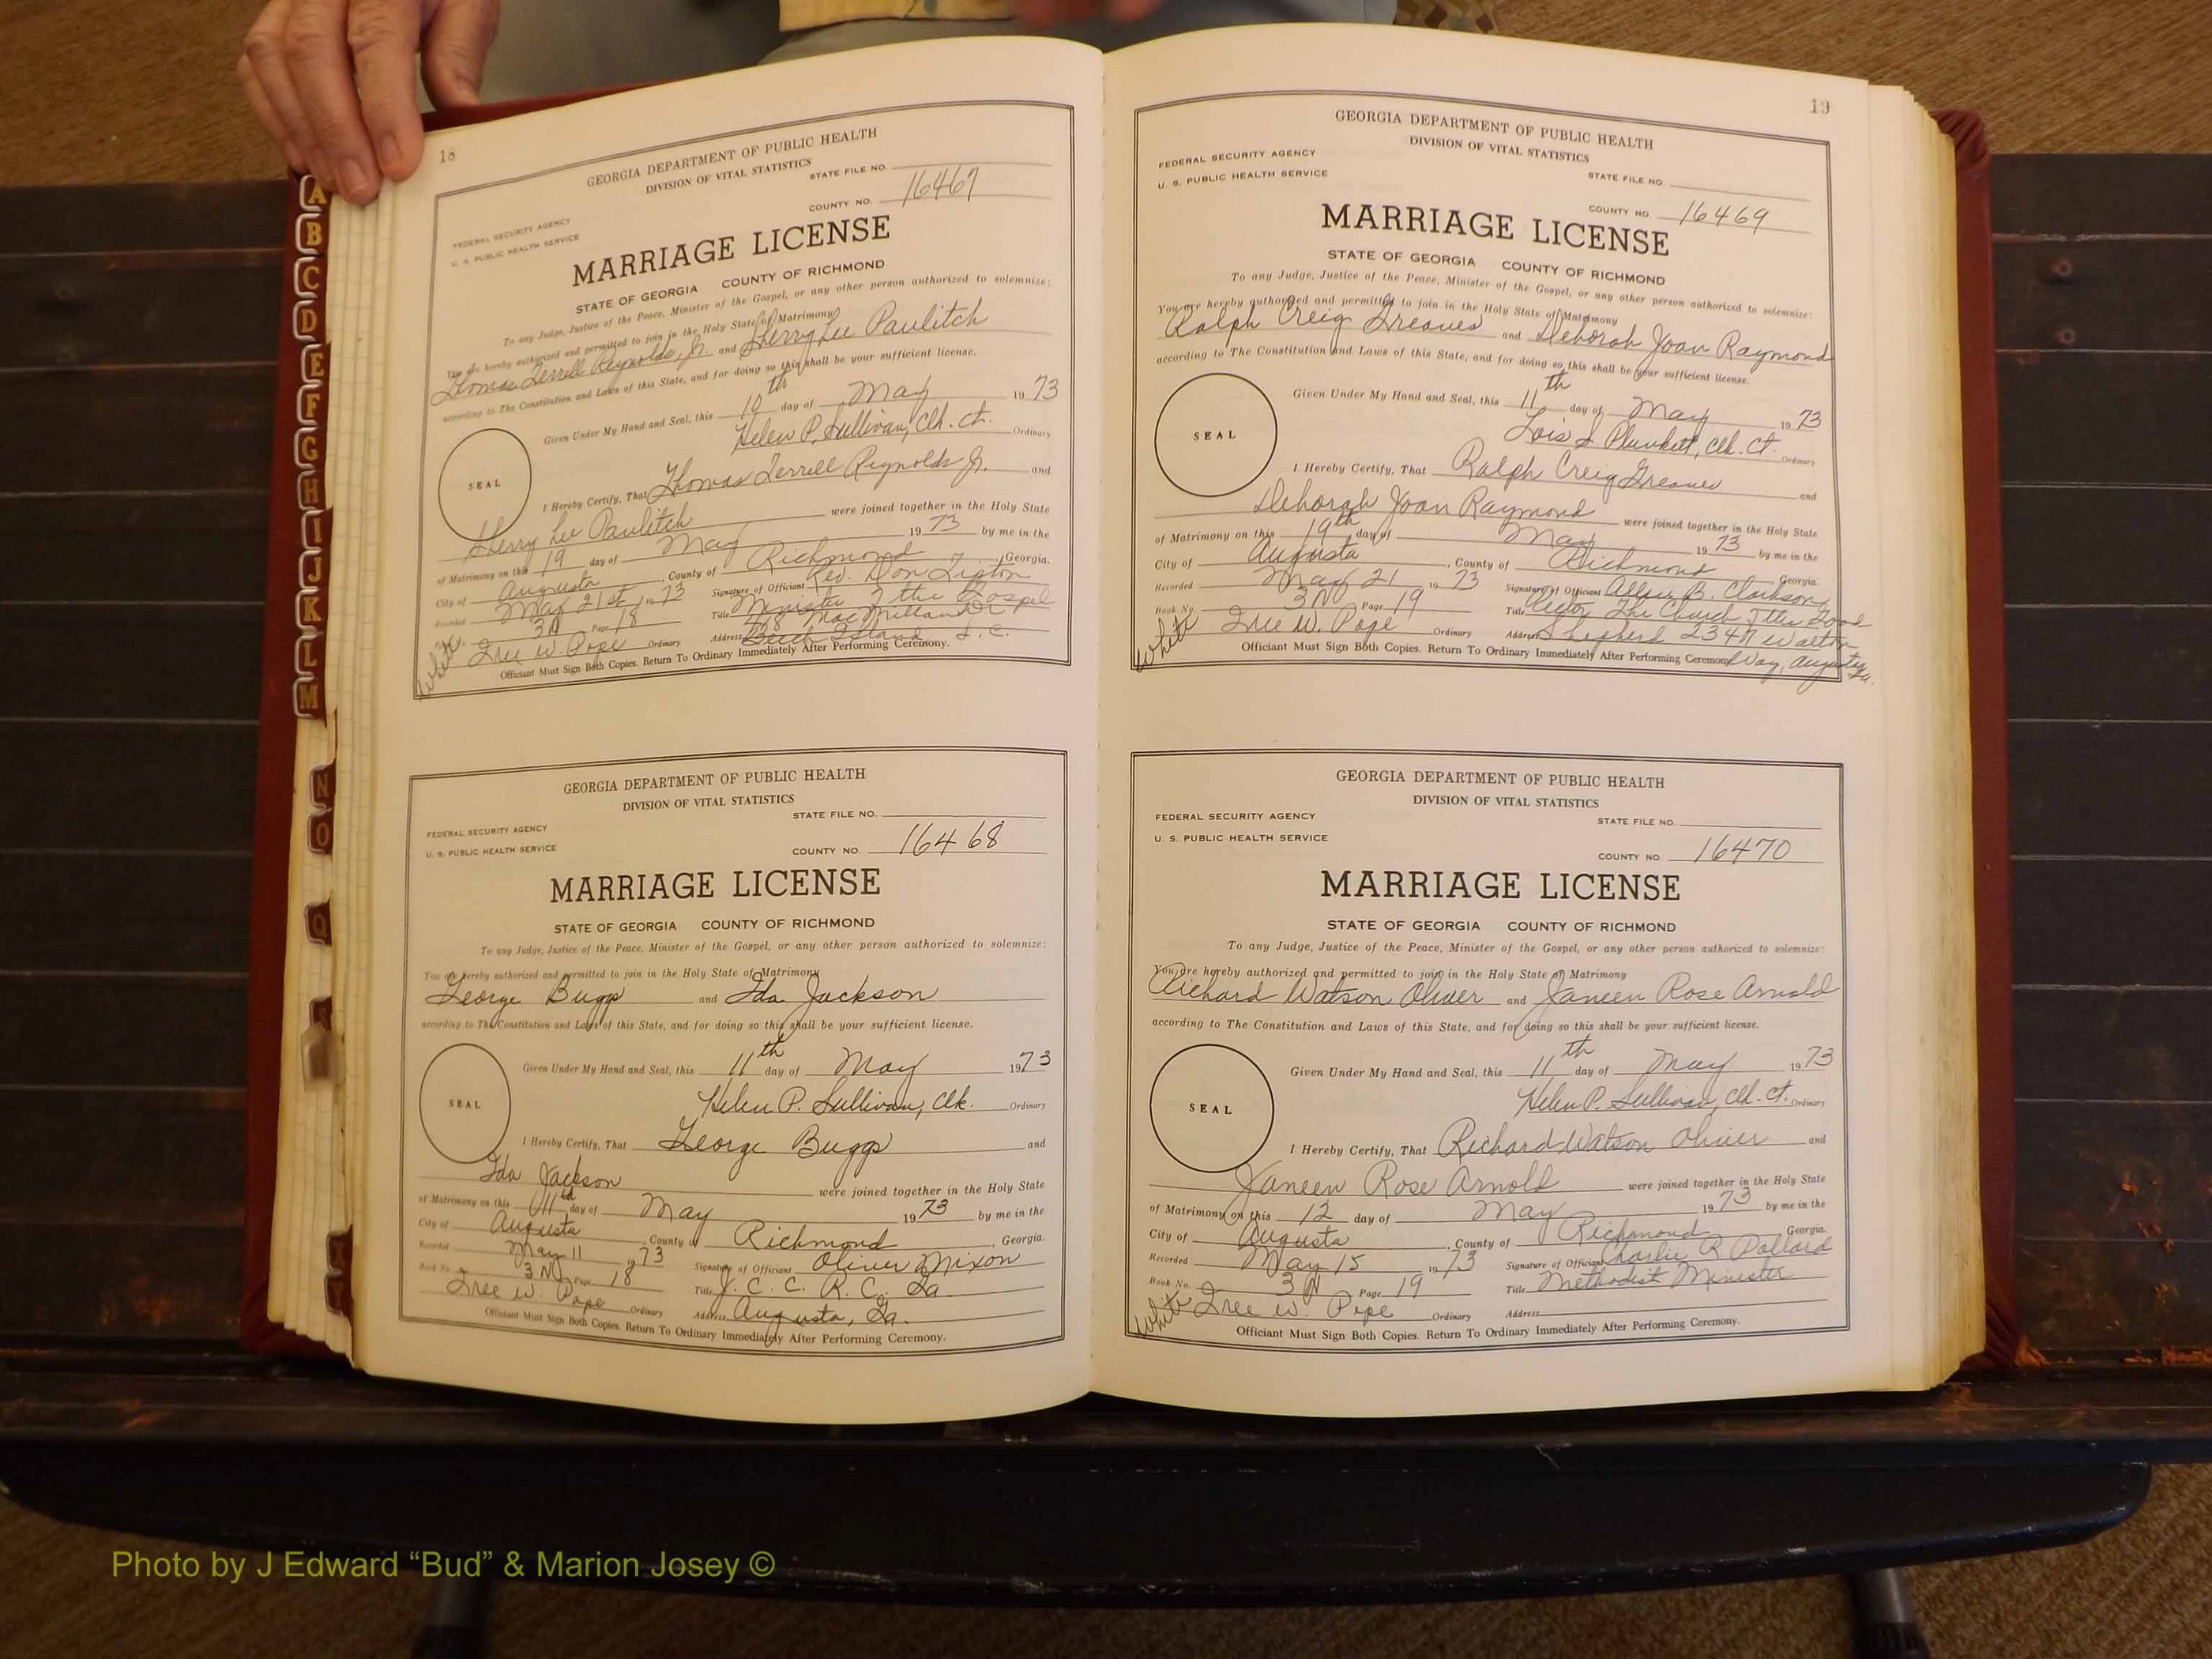 18
GEORGIA DEPARTMENT OF PUBLIC HEALTH
DIVISION OF VITAL STATISTICS
STATE FILE NO.
COUNTY NO. 16467
FEDERAL SECURITY AGENCY
U. S. PUBLIC HEALTH SERVICE
MARRIAGE LICENSE
STATE OF GEORGIA COUNTY OF RICHMOND
To any Judge, Justice of the Peace, Minister of the Gospel, or any other person authorized to solemnize:
You are hereby authorized and permitted to join in the Holy State of Matrimony
Thomas Terrell Reynolds, Jr. and Sherry Lee Paulitch
according to The Constitution and Laws of this State, and for doing so this shall be your sufficient license.
Given Under My Hand and Seal, this 10th day of May 1973
Helen P. Sullivan, Clk. Ct. Ordinary
SEAL
I Hereby Certify, That Thomas Terrell Reynolds Jr. and
Sherry Lee Paulitch were joined together in the Holy State
of Matrimony on this 19 day of May 1973 by me in the
City of Augusta, County of Richmond, Georgia.
Recorded May 21st, 1973 Signature of Officiant Rev. Don Lipton
3N Page 18 Title Minister of the Gospel
718 MacMillan Dr
Tree W. Pope Ordinary Address Beech Island S.C.
White
Officiant Must Sign Both Copies. Return To Ordinary Immediately After Performing Ceremony.
GEORGIA DEPARTMENT OF PUBLIC HEALTH
DIVISION OF VITAL STATISTICS
STATE FILE NO.
FEDERAL SECURITY AGENCY
U. S. PUBLIC HEALTH SERVICE
COUNTY NO. 16468
MARRIAGE LICENSE
STATE OF GEORGIA COUNTY OF RICHMOND
To any Judge, Justice of the Peace, Minister of the Gospel, or any other person authorized to solemnize:
You are hereby authorized and permitted to join in the Holy State of Matrimony
George Buggs and Ida Jackson
according to The Constitution and Laws of this State, and for doing so this shall be your sufficient license.
Given Under My Hand and Seal, this 11th day of May 1973
Helen P. Sullivan, Clk. Ordinary
SEAL
I Hereby Certify, That George Buggs and
Ida Jackson were joined together in the Holy State
of Matrimony on this 11th day of May 1973 by me in the
City of Augusta, County of Richmond, Georgia.
Recorded May 11 1973 Signature of Officiant Oliver Mixon
Book No. 3N Page 18 Title J. C. C. R. C. Ga.
Tree W. Pope Ordinary Address Augusta, Ga.
Officiant Must Sign Both Copies. Return To Ordinary Immediately After Performing Ceremony.
19
GEORGIA DEPARTMENT OF PUBLIC HEALTH
DIVISION OF VITAL STATISTICS
FEDERAL SECURITY AGENCY
U. S. PUBLIC HEALTH SERVICE
STATE FILE NO.
COUNTY NO. 16469
MARRIAGE LICENSE
STATE OF GEORGIA COUNTY OF RICHMOND
To any Judge, Justice of the Peace, Minister of the Gospel, or any other person authorized to solemnize:
You are hereby authorized and permitted to join in the Holy State of Matrimony
Ralph Creig Greaves and Deborah Joan Raymond
according to The Constitution and Laws of this State, and for doing so this shall be your sufficient license.
Given Under My Hand and Seal, this 11th day of May 1973
Lois S. Plunkett, Clk. Ct. Ordinary
SEAL
I Hereby Certify, That Ralph Creig Greaves and
Deborah Joan Raymond were joined together in the Holy State
of Matrimony on this 19th day of May 1973 by me in the
City of Augusta, County of Richmond, Georgia.
Recorded May 21 1973 Signature of Officiant Allan B. Clarkson
Book No. 3N Page 19 Title Rector The Church of the Good
Tree W. Pope Ordinary Address Shepherd 2347 Walton
White
Officiant Must Sign Both Copies. Return To Ordinary Immediately After Performing Ceremony. Way, Augusta, Ga.
GEORGIA DEPARTMENT OF PUBLIC HEALTH
DIVISION OF VITAL STATISTICS
FEDERAL SECURITY AGENCY
STATE FILE NO.
U. S. PUBLIC HEALTH SERVICE
COUNTY NO. 16470
MARRIAGE LICENSE
STATE OF GEORGIA COUNTY OF RICHMOND
To any Judge, Justice of the Peace, Minister of the Gospel, or any other person authorized to solemnize:
You are hereby authorized and permitted to join in the Holy State of Matrimony
Richard Watson Oliver and Janeen Rose Arnold
according to The Constitution and Laws of this State, and for doing so this shall be your sufficient license.
Given Under My Hand and Seal, this 11th day of May 1973
Helen P. Sullivan, Clk. Ct. Ordinary
SEAL
I Hereby Certify, That Richard Watson Oliver and
Janeen Rose Arnold were joined together in the Holy State
of Matrimony on this 12 day of May 1973 by me in the
City of Augusta, County of Richmond, Georgia.
Recorded May 15 1973 Signature of Officiant Charlie R Pollard
Book No. 3N Page 19 Title Methodist Minister
White
Tree W. Pope Ordinary Address
Officiant Must Sign Both Copies. Return To Ordinary Immediately After Performing Ceremony.
A
B
C
D
E
F
G
H
I
J
K
L
M
N
O
Q
S
Photo by J Edward “Bud” & Marion Josey ©